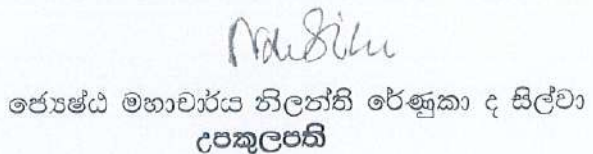 ජ්‍යෙෂ්ඨ මහාචාර්ය නිලන්ති රේණුකා ද සිල්වා
උපකුලපති